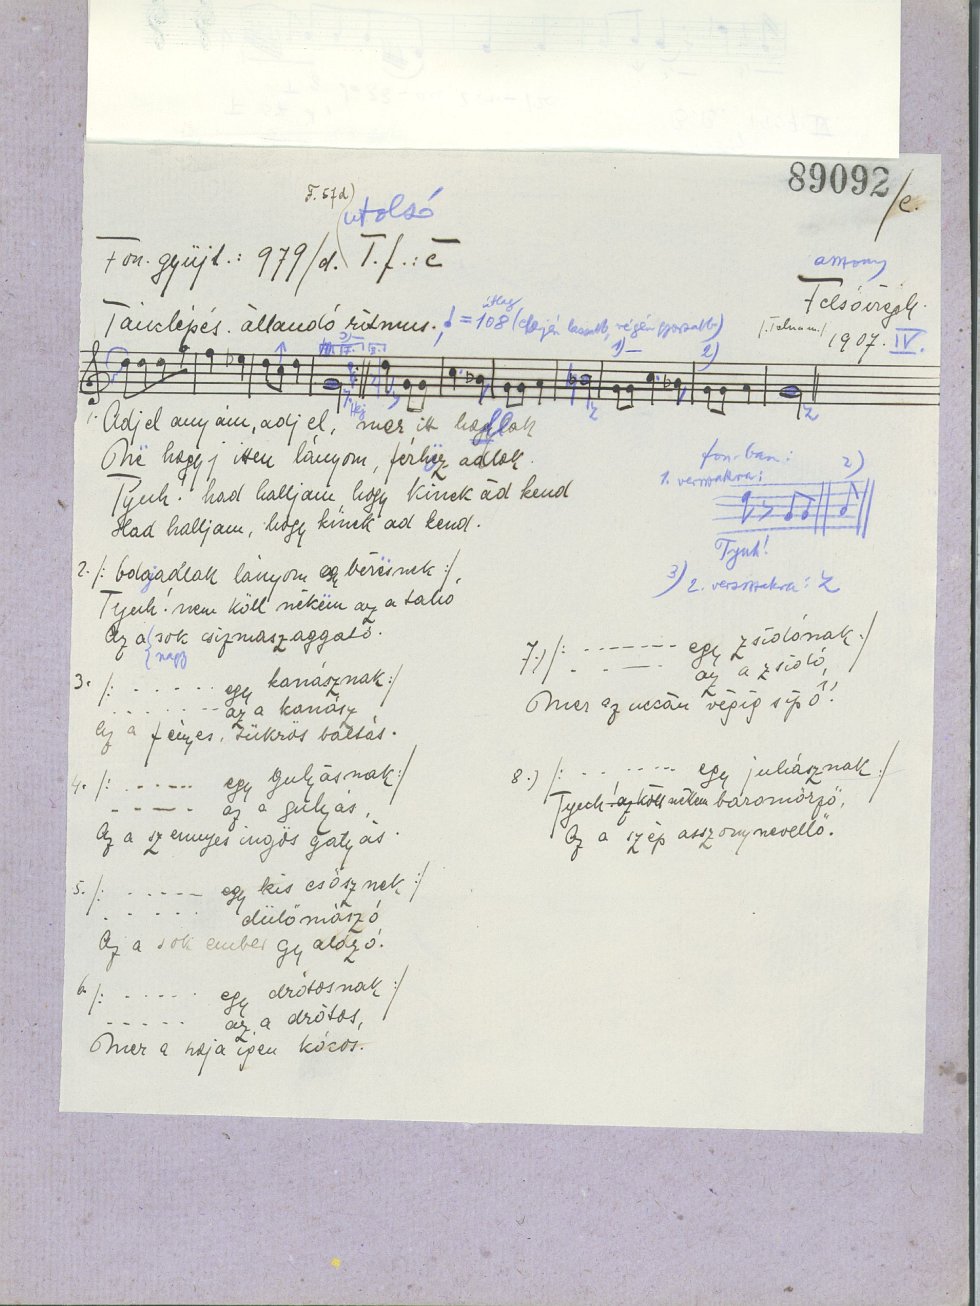 89092/c.
F. 57d)
utolsó
Fon. gyüjt.: 979/d. T. f.: c
asszony
Felsőiregh.
(Tolna m.) 1907. IV.
Tánclépés. állandó ritmus. ♩ = 108 (elején lassabb, végén gyorsabb)
átlag
1) 2)
1. Adj el anyám, adj el, mer itt hagylak
Në hagyj itten lányom, férhëz adlak.
Tyuh! had halljam hogy kinek ád kend
Had halljam, hogy kinek ád kend.
fon-ban:
1. versszakra: 2)
Tyuh!
3) 2. versszakra:
2. /: Odaadlak lányom egy bérësnek :/
Tyuh! nem köll nékëm az a tahó
Az a sok csizmaszaggató.
nagy
3. /: . . . . . . egy kanásznak :/
. . . . . . az a kanász
Az a fényes, tükrös baltás.
4. /: . . . . . . egy gulyásnak :/
. . . . . az a gulyás,
Az a szennyes ingös gatyás.
5. /: . . . . . egy kis csősznek :/
. . . . . dülőmászó
Az a sok ember gyalázó.
6. /: . . . . . egy drótosnak :/
. . . . . az a drótos,
Mer a haja igen kócos.
7.) /: . . . . . . egy zsidónak :/
. . . . . az a zsidó,
Mer az uccán végig sípó!
8.) /: . . . . . . egy juhásznak :/
Tyuh! az köll nékem baromőrző,
Az a szép asszonynevellő.